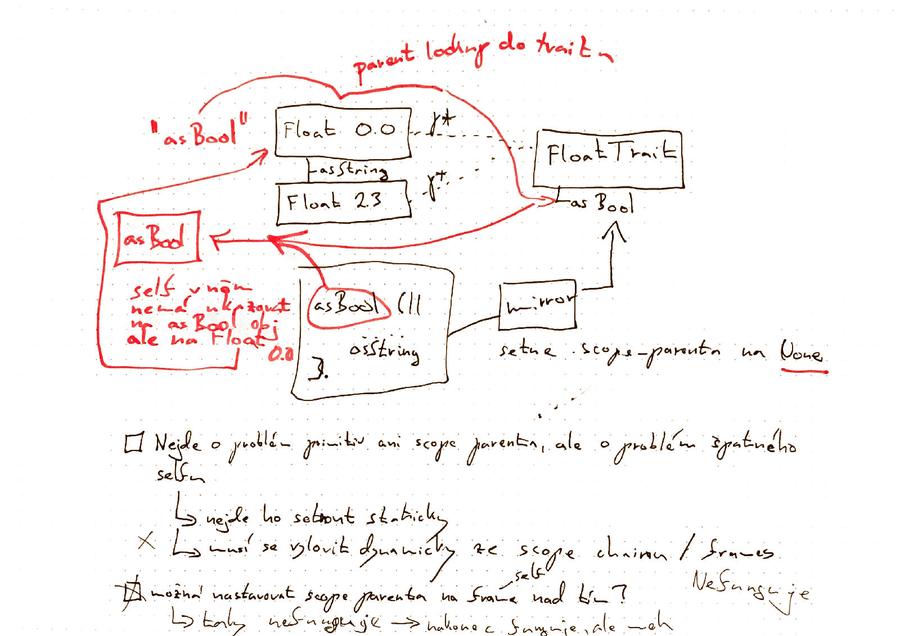 parent lookup do traitu
"asBool"
Float 0.0
γ*
FloatTrait
asString
Float 23
γ*
asBool
asBool
self v něm
nemá ukazovat
na asBool obj
ale na Float
0.0
asBool (||
asString
).
mirror
setne scope-parenta na None
Nejde o problém primitiv ani scope parenta, ale o problém špatného
selfu
nejde ho setnout staticky
musí se vylovit dynamicky ze scope chainu / frames
self
možná nastavovat scope parenta na frame nad tím?
Nefunguje
taky nefunguje → nakonec funguje, ale